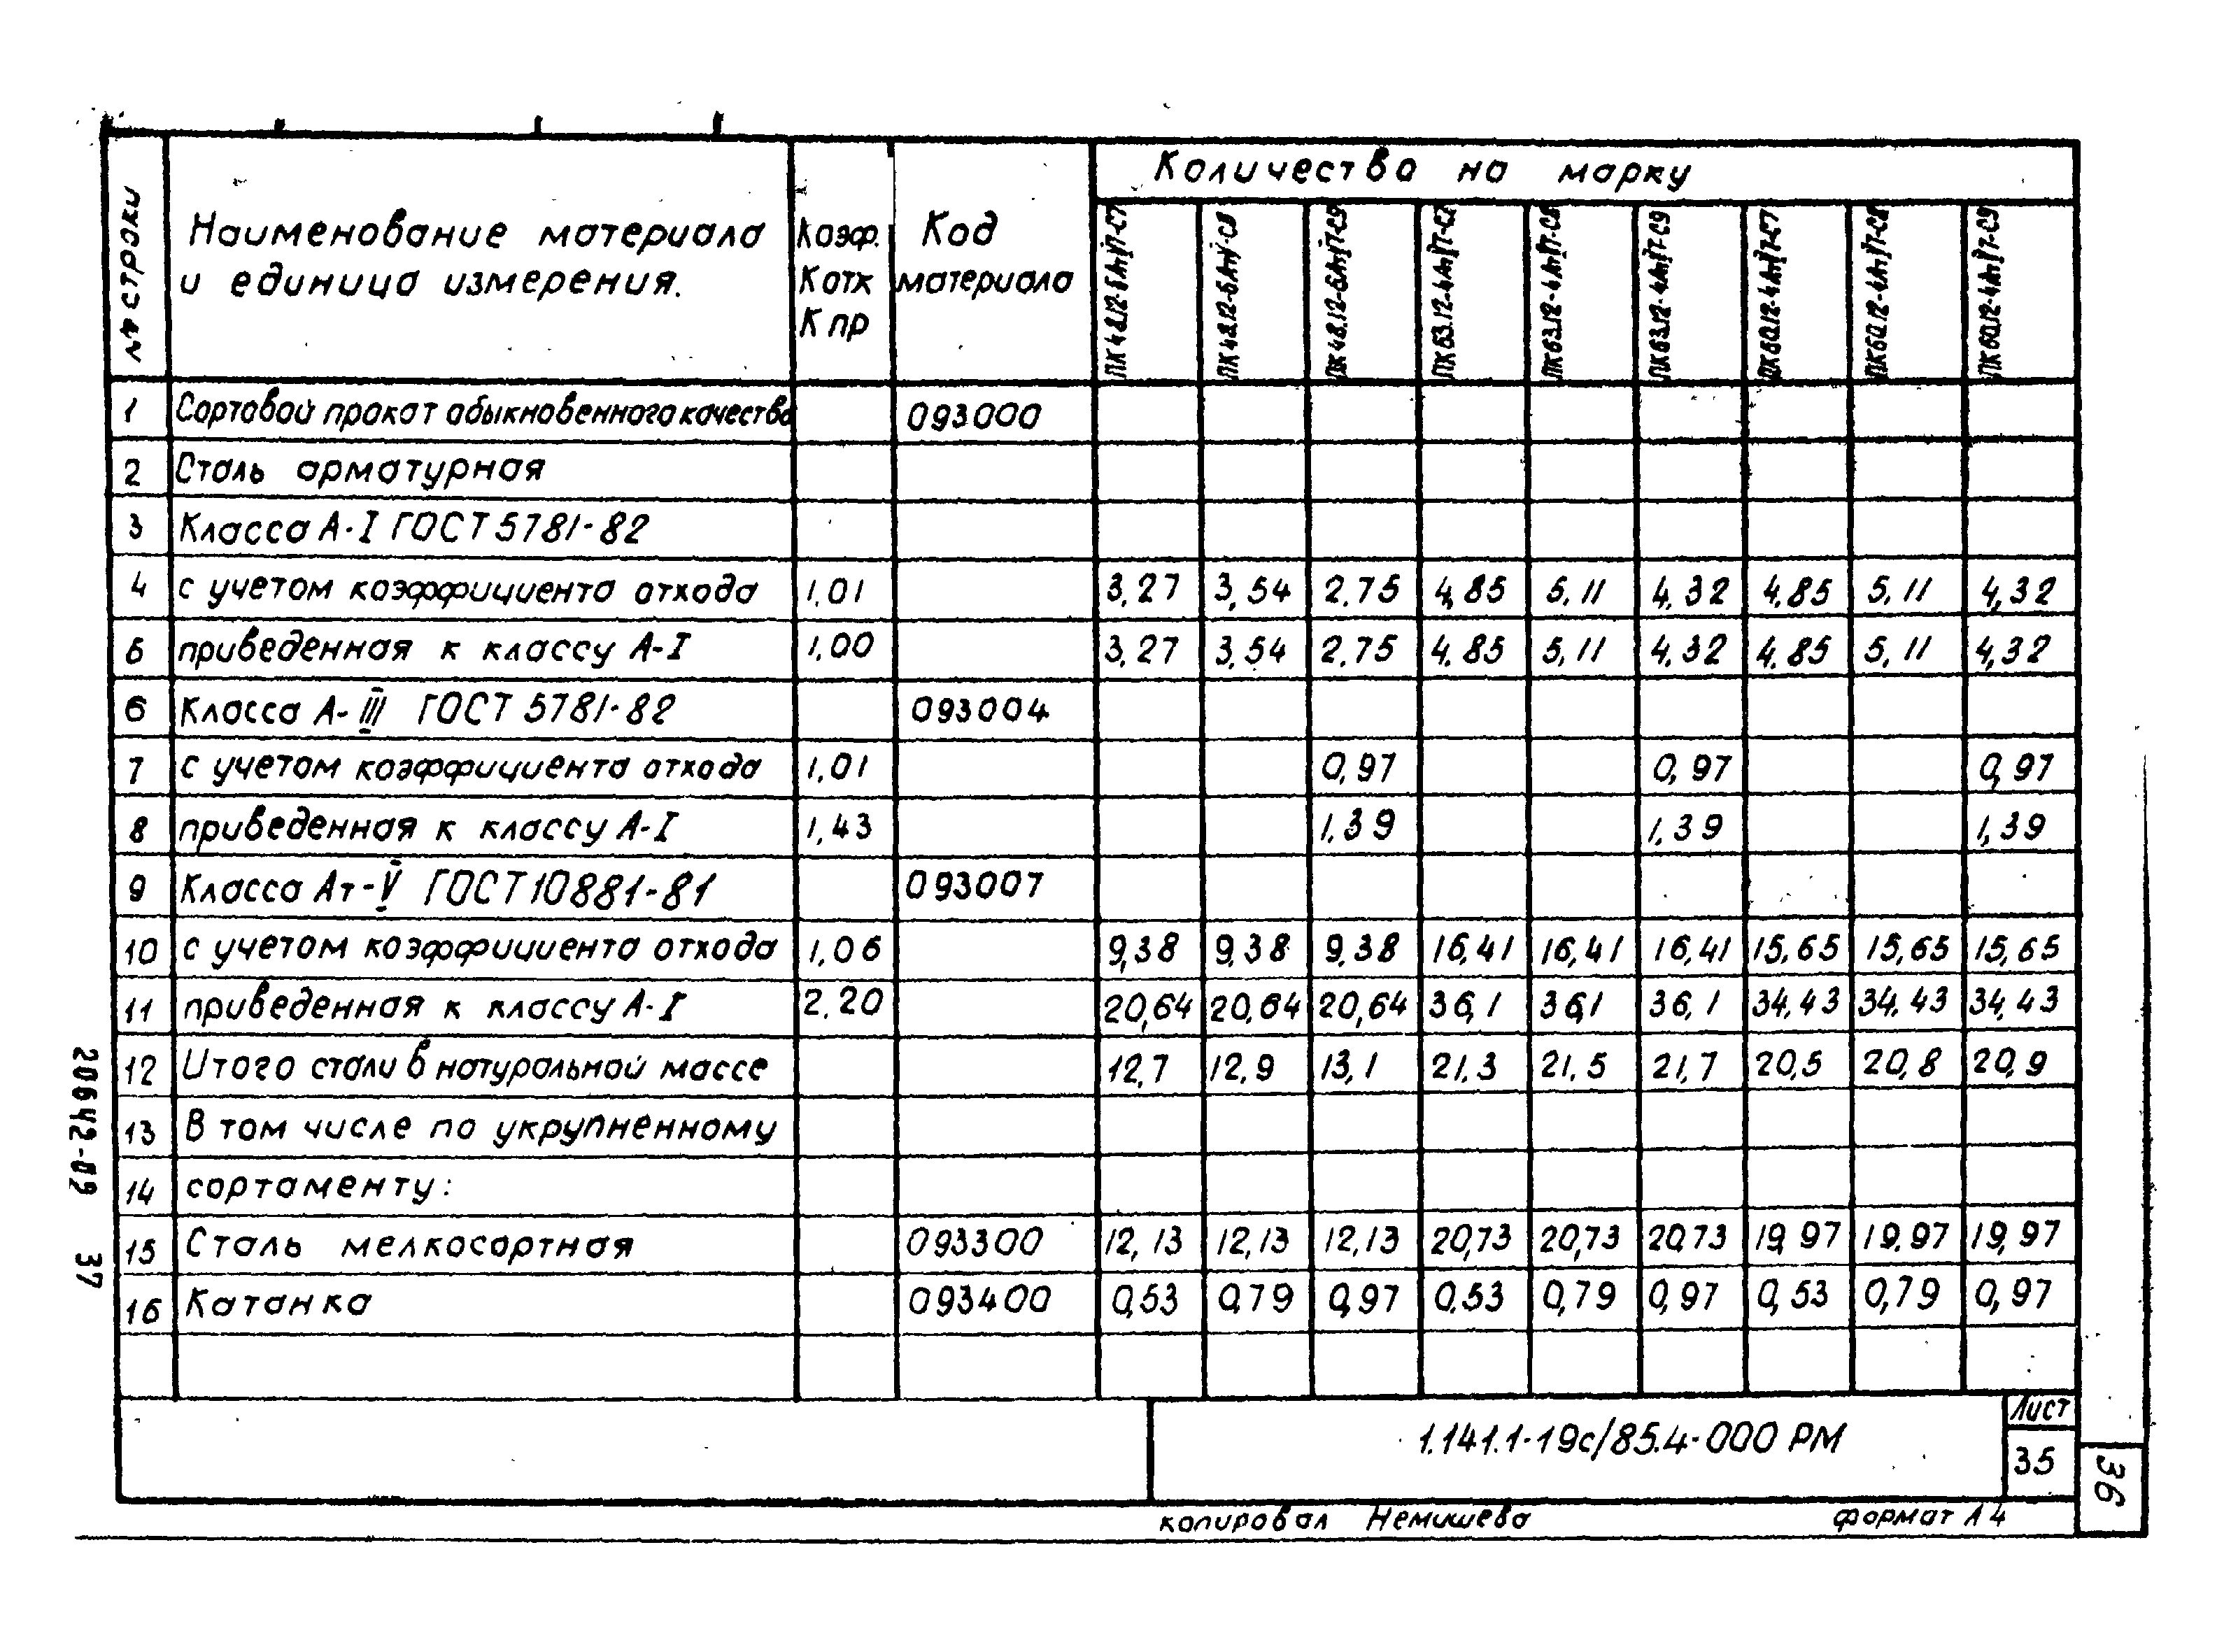 № строки
Наименование материала
и единица измерения.
Коэф.
Котх
Кпр
Код
материала
Количество на марку
1 Сортовой прокат обыкновенного качества 093000
2 Сталь арматурная
3 Класса А-I ГОСТ 5781-82
4 с учетом коэффициента отхода 1,01 3,27 3,54 2,75 4,85 5,11 4,32 4,85 5,11 4,32
5 приведенная к классу А-I 1,00 3,27 3,54 2,75 4,85 5,11 4,32 4,85 5,11 4,32
6 Класса А-III ГОСТ 5781-82 093004
7 с учетом коэффициента отхода 1,01 0,97 0,97 0,97
8 приведенная к классу А-I 1,43 1,39 1,39 1,39
9 Класса Ат-V ГОСТ 10881-81 093007
10 с учетом коэффициента отхода 1,06 9,38 9,38 9,38 16,41 16,41 16,41 15,65 15,65 15,65
11 приведенная к классу А-I 2.20 20,64 20,64 20,64 36,1 36,1 36,1 34.43 34.43 34,43
12 Итого стали в натуральной массе 12,7 12,9 13,1 21.3 21.5 21,7 20,5 20,8 20,9
13 В том числе по укрупненному
14 сортаменту:
15 Сталь мелкосортная 093300 12,13 12,13 12,13 20,73 20,73 20,73 19,97 19.97 19,97
16 Катанка 093400 0,53 0,79 0,97 0.53 0,79 0,97 0,53 0,79 0,97
1.141.1-19с/85.4-000 РМ
Лист
35
36
копировал Немишева формат А4
20642-09 37